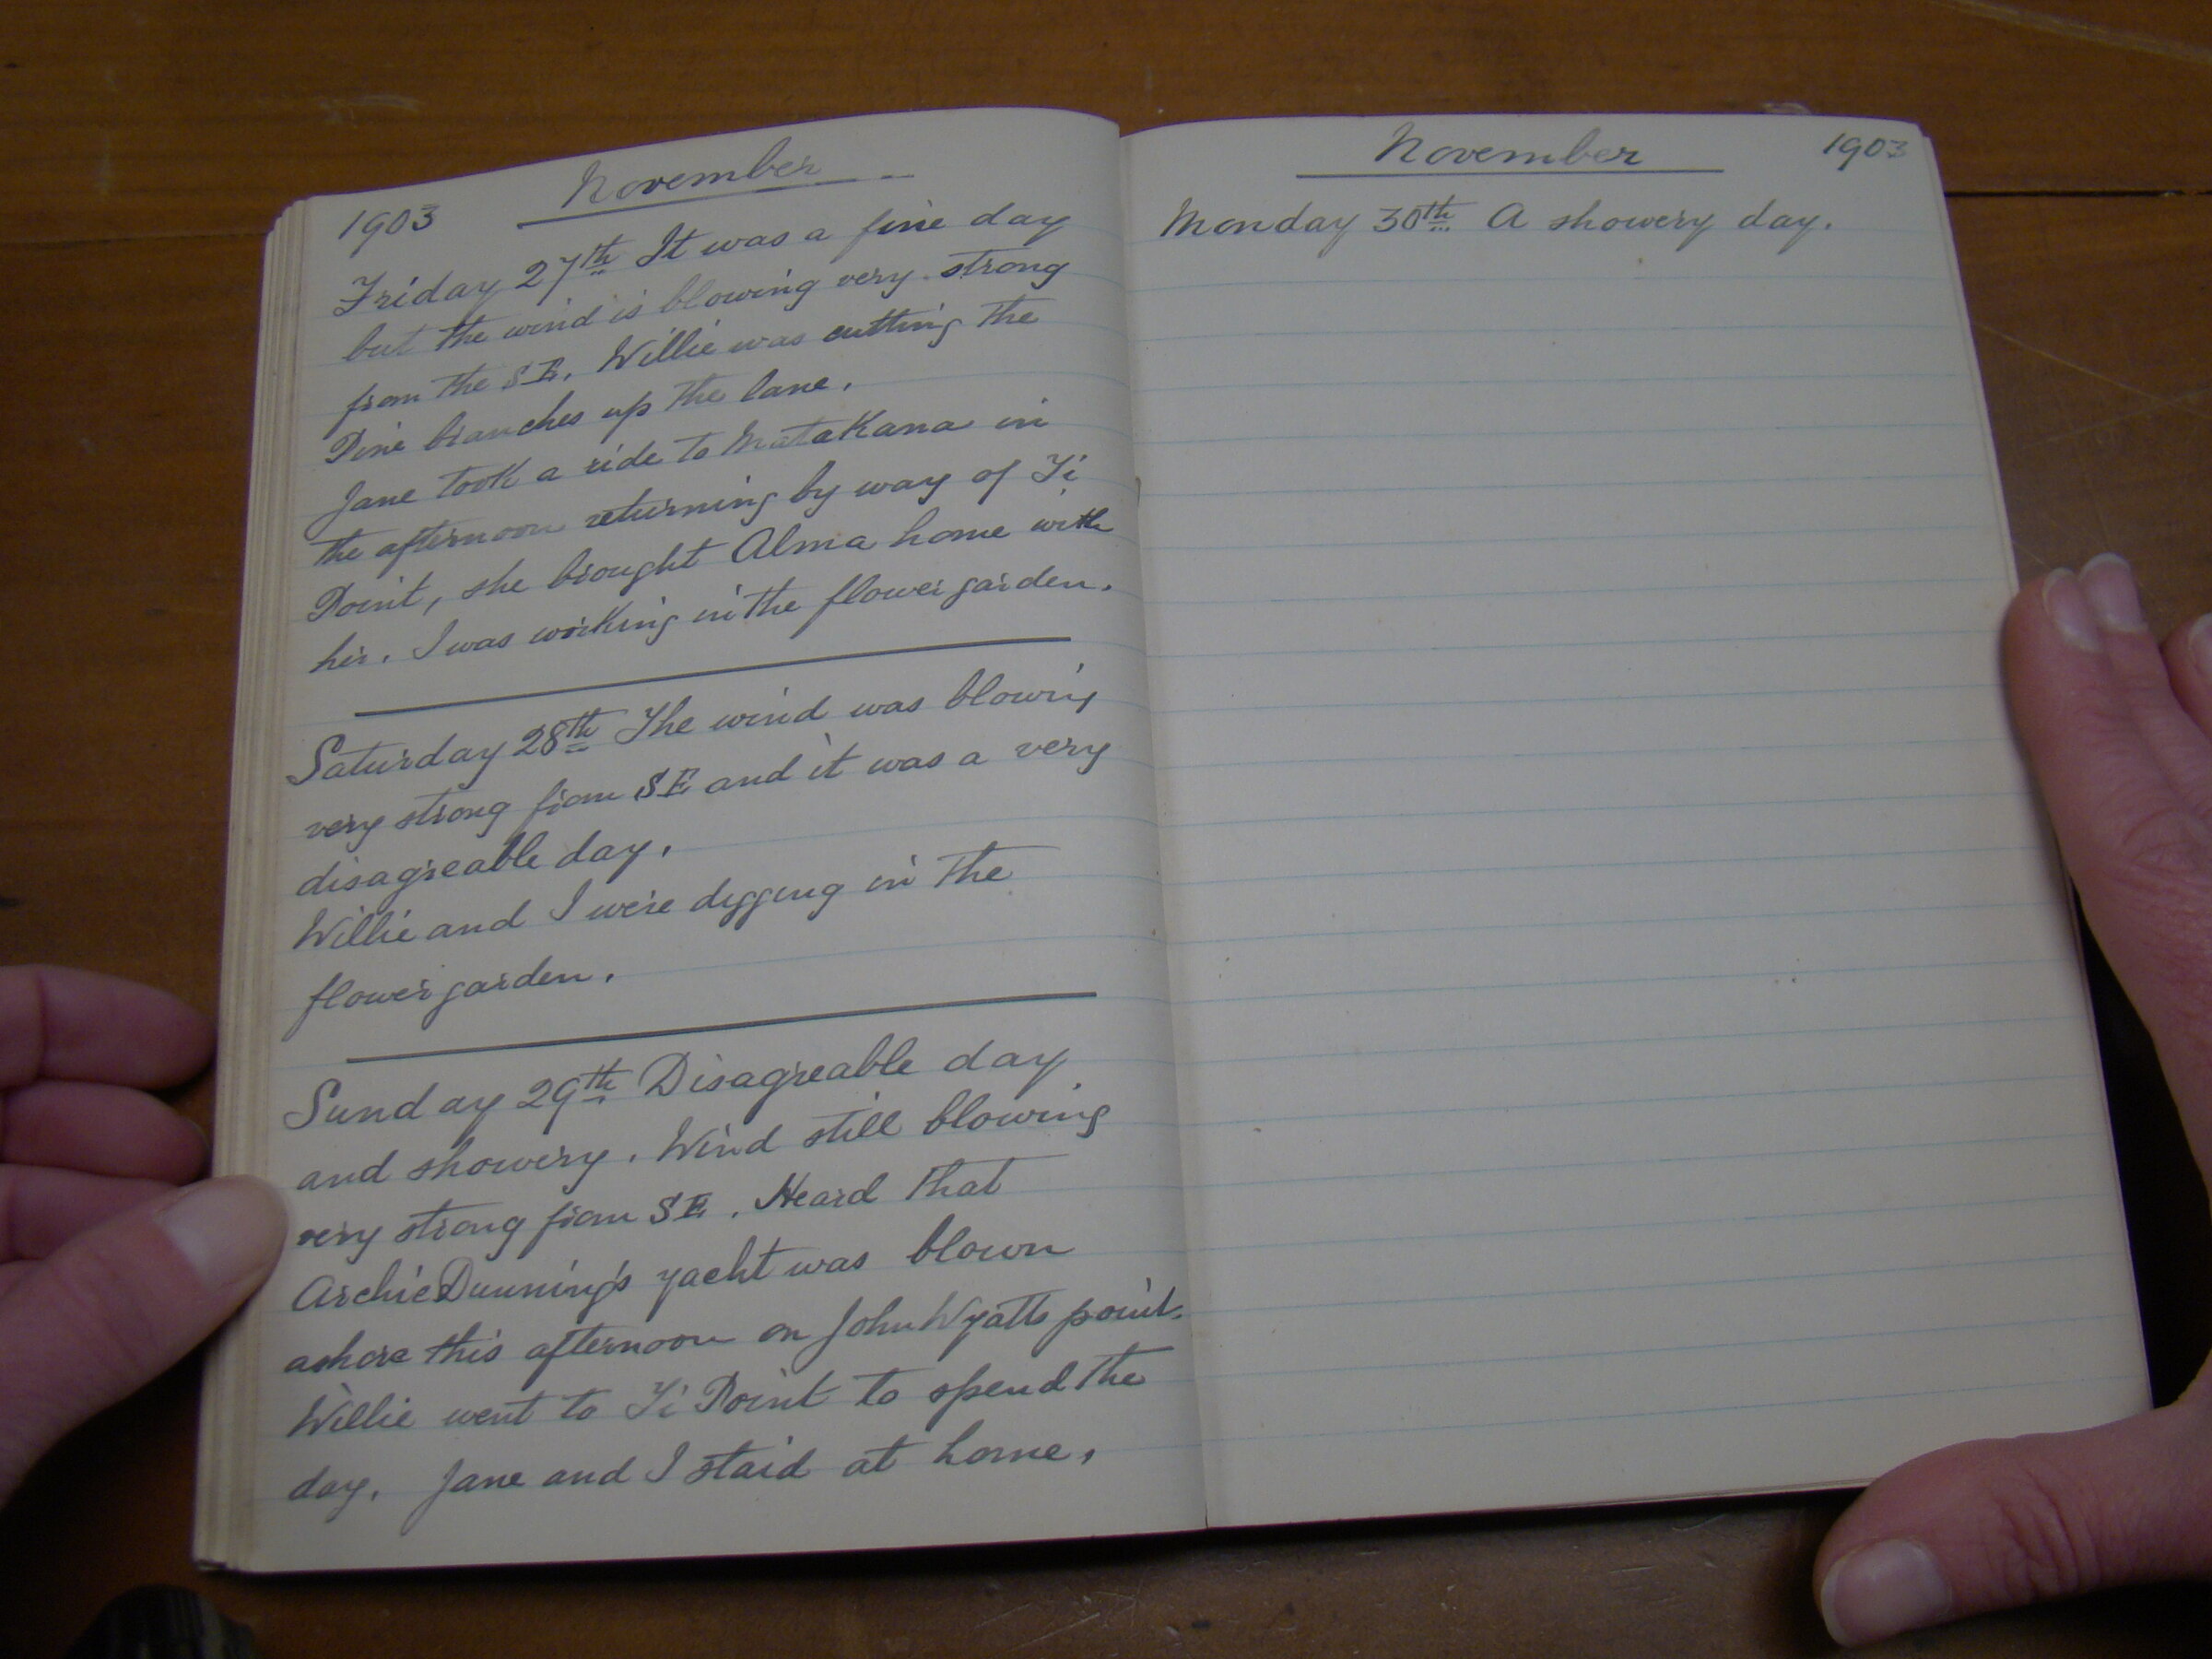 1903 November
Friday 27th It was a fine day
but the wind is blowing very strong
from the SE. Willie was cutting the
Pine branches up the lane.
Jane took a ride to Matakana in
the afternoon returning by way of Ti
Point, she brought Alma home with
her. I was working in the flower garden.
Saturday 28th The wind was blowing
very strong from SE and it was a very
disagreable day.
Willie and I were digging in the
flower garden.
Sunday 29th Disagreable day
and showery. Wind still blowing
very strong from SE. Heard that
Archie Dunning's yacht was blown
ashore this afternoon on John Wyatts point.
Willie went to Ti Point to spend the
day. Jane and I staid at home.
November 1903
Monday 30th A showery day.